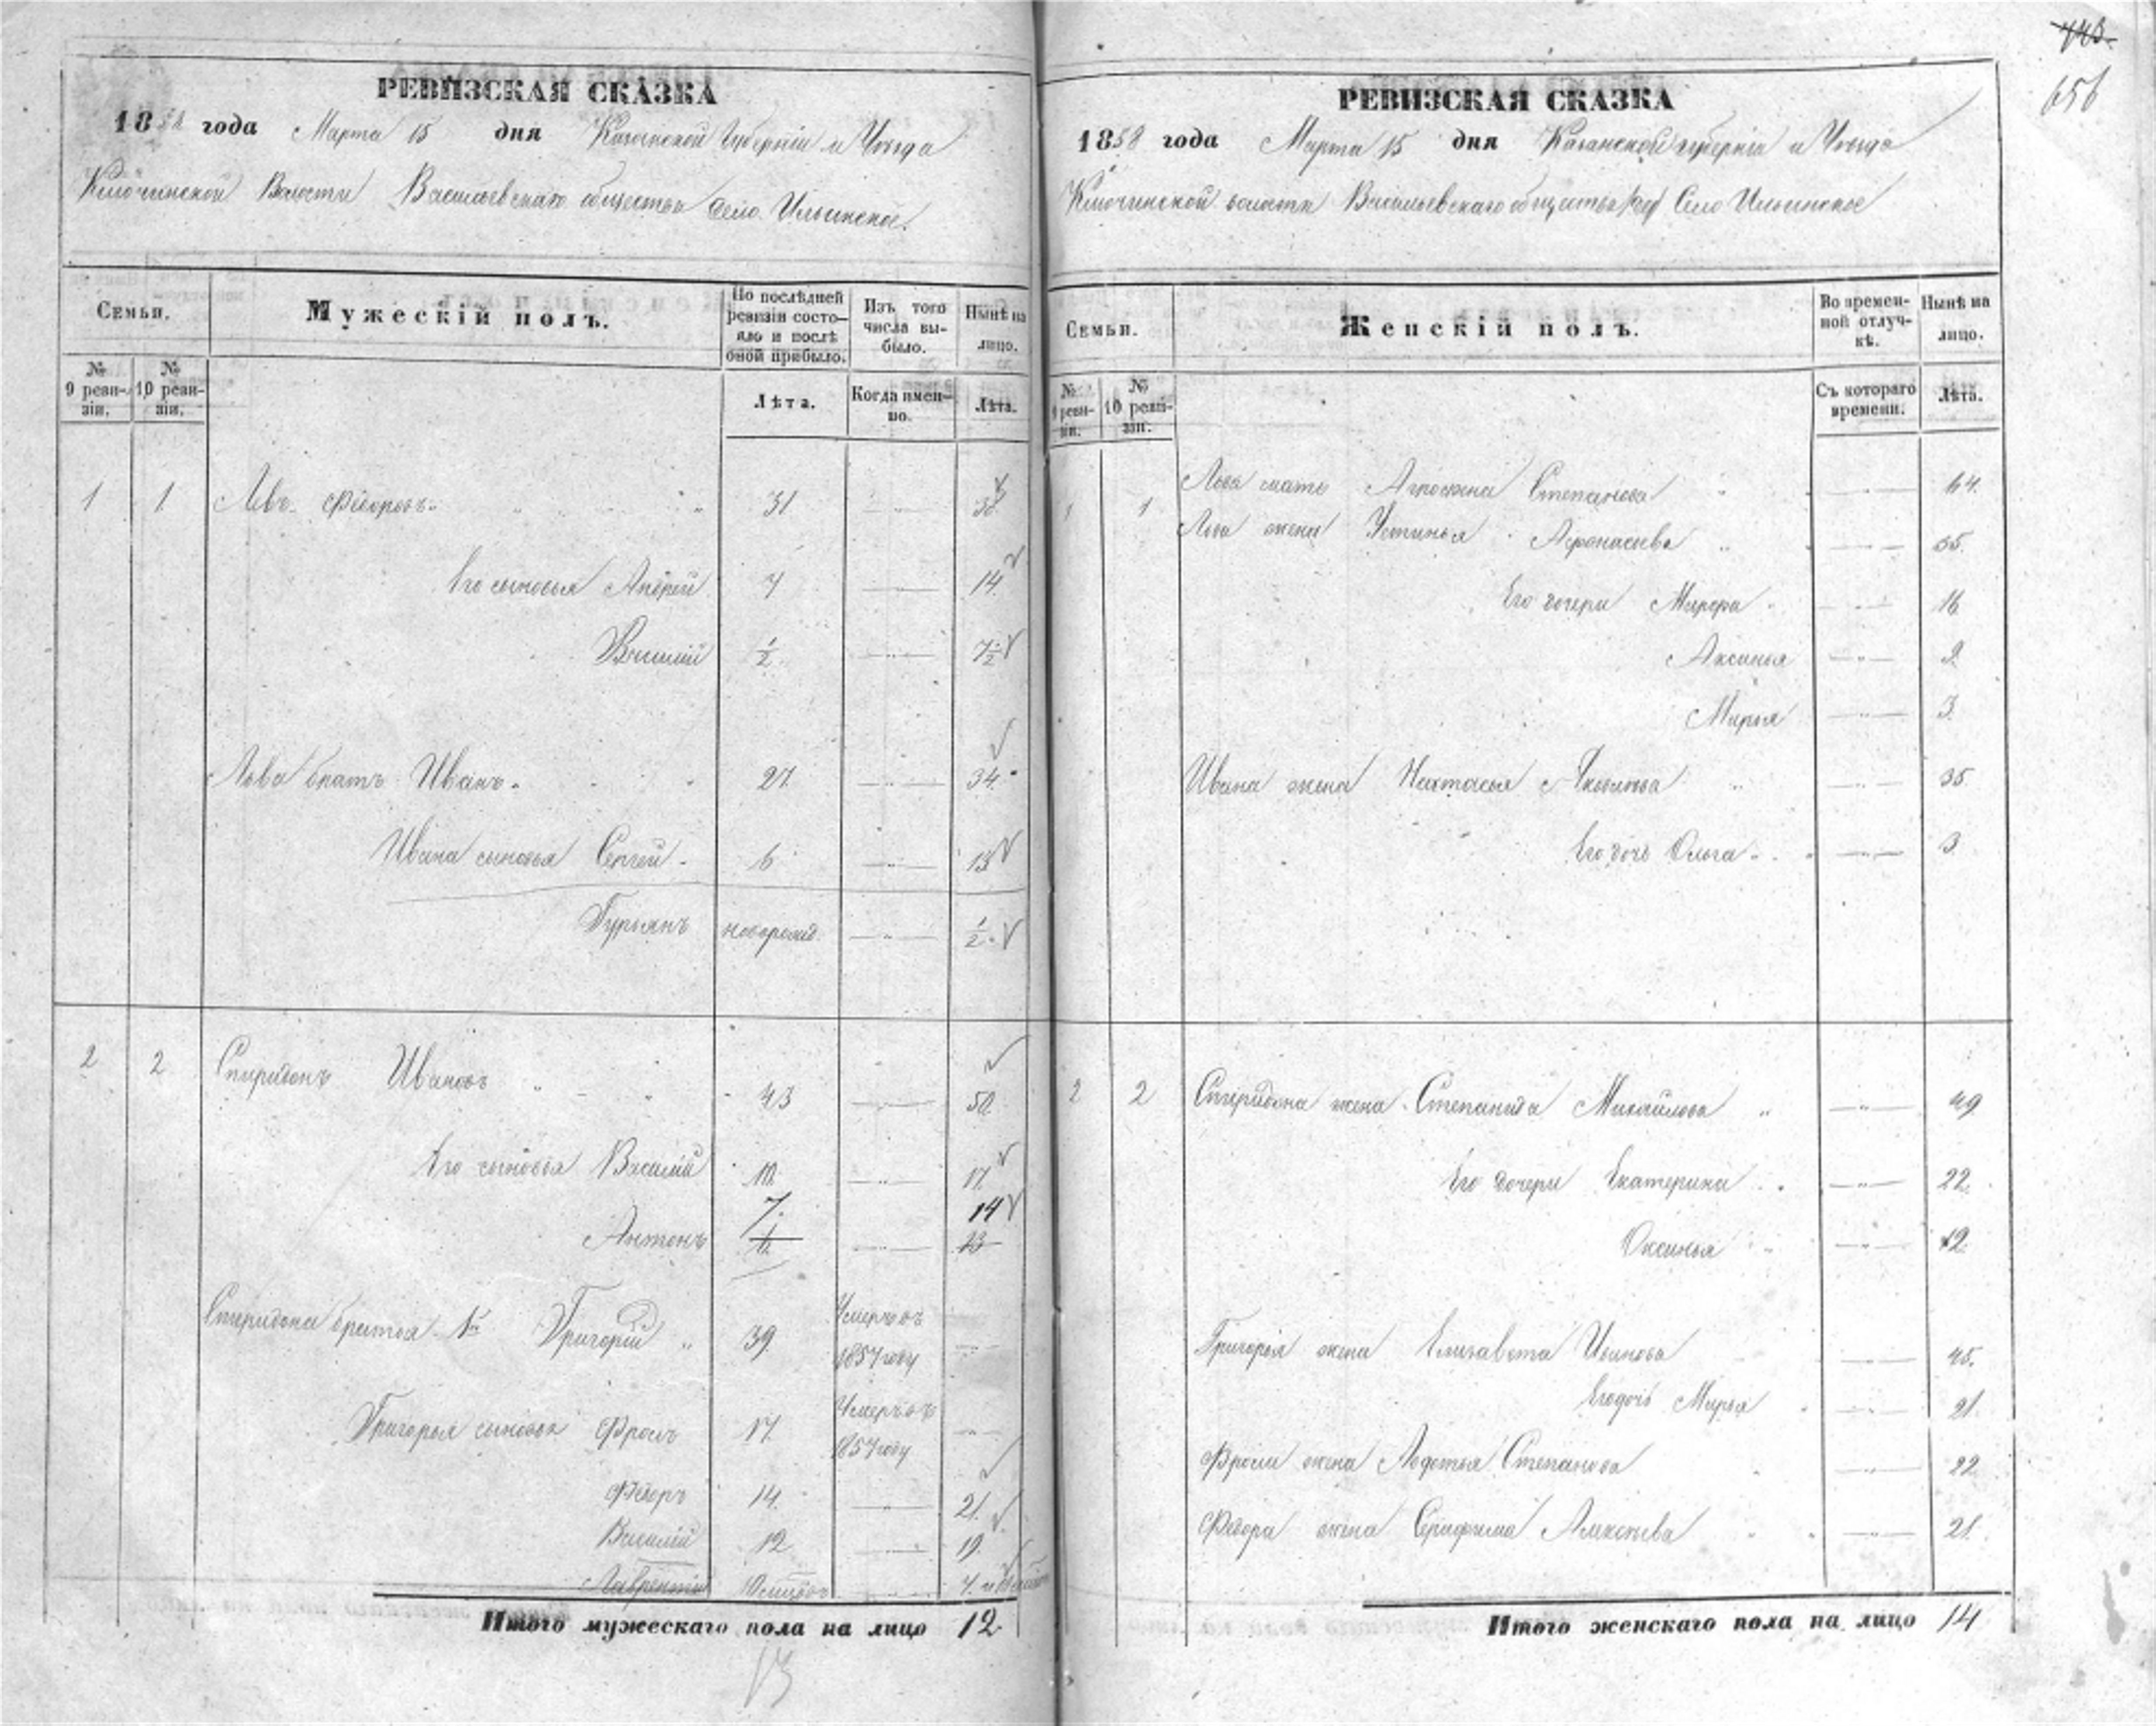 443.
656
РЕВИЗСКАЯ СКАЗКА
1858 года Марта 15 дня Казанской Губерніи и Уѣзда
Ключинской Волости Васильевскаго общества Село Ильинское.
Семьи.
Мужескій полъ.
По послѣдней ревизіи состо-
яло и послѣ
оной прибыло.
Изъ того
числа вы-
было.
Нынѣ на
лицо.
№ 9 реви-
зіи.
№ 10 реви-
зіи.
Лѣта.
Когда имен-
но.
Лѣта.
1 1 Левъ Ѳедоровъ 31 38
Его сыновья Андрей 7 14
Василій 1/2 7 1/2
Льва братъ Иванъ 27 34
Ивана сыновья Сергей 6 13
Гурьянъ новорожд. 1/2
2 2 Спиридонъ Ивановъ 43 50
Его сыновья Василій 10 17
7. 14
Антонъ 6. 13
Спиридона братья 1й Григорій 39 Умеръ въ
1857 году
Григорья сыновья Фролъ 17 Умеръ въ
1857 году
Ѳедоръ 14 21
Василій 12 19
Лаврентій
Итого мужескаго пола на лицо 12
13
РЕВИЗСКАЯ СКАЗКА
1858 года Марта 15 дня Казанской губерніи и Уѣзда
Ключинской волости Васильевскаго общества Село Ильинское
Семьи.
Женскій полъ.
Во времен-
ной отлуч-
кѣ.
Нынѣ на
лицо.
№ 9 реви-
зіи.
№ 10 реви-
зіи.
Съ котораго
времени.
Лѣта.
1 1 Льва мать Степанова 64
Льва жена Устинья Афонасьева 35
Его дочери Марфа 16
Аксинья 9
Марья 3
Ивана жена Настасья Яковлева 35
Его дочь Ольга 3
2 2 Спиридона жена Степанида Михайлова 49
Его дочери Екатерина 22
Оксинья 12
Григорья жена Елизавета Иванова 45
Его дочь Марья 21
Фрола жена Авдотья Степанова 22
Ѳедора жена Серафима Алексѣева 21
Итого женскаго пола на лицо 14